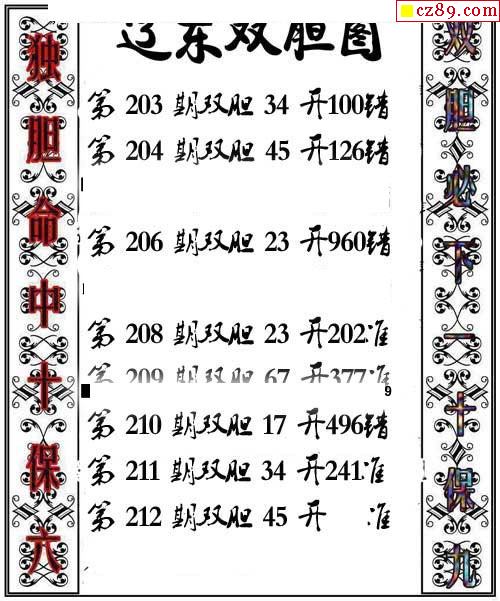 cz89.com
辽东双胆图
独胆命中十保六
双胆必下一十保九
第 203 期双胆 34 开100错
第 204 期双胆 45 开126错
第 206 期双胆 23 开960错
第 208 期双胆 23 开202准
第 209 期双胆 67 开377准
9
第 210 期双胆 17 开496错
第 211 期双胆 34 开241准
第 212 期双胆 45 开 准